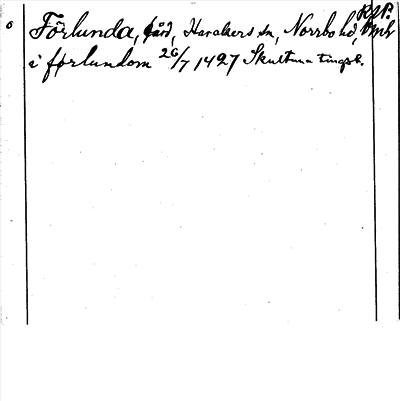 o Förlunda, gård, Harakers sn, Norrbo hd, Vml.
i førlundom 26/7 1427 Skultuna tingsl.